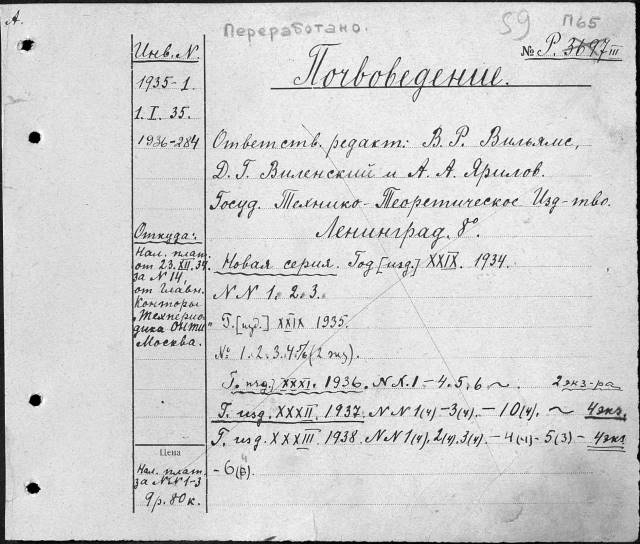 А.
Переработано.
59 П65
№ Р. 3697 III
Почвоведение.
Инв. N.
1935-1.
1. I. 35.
1936-284
Ответств. редакт: В. Р. Вильямс,
Д. Г. Виленский и А. А. Ярилов.
Госуд. Технико-Теоретическое Изд-тво.
Ленинград. 8°.
Откуда:
Нал. плат.
от 23.XII.34
за N 14,
от Главн.
Конторы
„Техперио-
дика ОНТИ"
Москва.
Новая серия. Год [изд.] XXIX. 1934.
N N 1. 2. 3.
Г. [изд.] XXIX 1935.
№ 1. 2. 3. 4. (2 экз)
Г. изд. XXXI. 1936. N.N. 1-4. 5. 6 ~ 2 экз-ра
Г. изд. XXXII. 1937. N N 1(4) -3(4). -10(4). ~ 4 экз.
Г. изд. XXXIII. 1938. N N 1(4). 2(4). 3(4). -4(4) -5(3) - 4 экз
-6
Цена
Нал. плат.
за NN 1-3
9 р. 80 к.